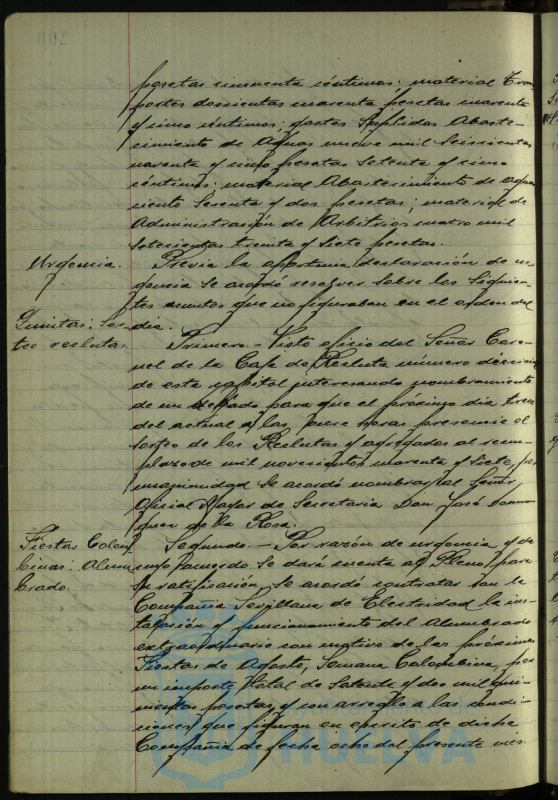 pesetas cincuenta céntimos; material Tras
portes doscientas cuarenta pesetas cuarenta
y cinco céntimos; gastos Suplidos Abaste-
cimiento de Aguas nueve mil seiscientas
noventa y cinco pesetas setenta y cinco
céntimos; material Abastecimiento de agua
ciento sesenta y dos pesetas; material de
Administración de Arbitrios cuatro mil
setecientas treinta y siete pesetas.
Urgencia.
Previa la oportuna declaración de ur
gencia se acordó resolver sobre los siguien-
tes asuntos que no figuraban en el orden del
día.
Quintas: Sor-
teo reclutas.
Primero.- Visto oficio del Señor Coro-
nel de la Caja de Recluta número
de esta capital interesando nombramiento
de un para que el próximo día trece
del actual a las nueve horas presencie el
sorteo de los Reclutas y agregados al reem-
plazo de mil novecientos cuarenta y siete, por
unanimidad se acordó nombrar al Señor
Oficial Mayor de Secretaría Don José
de la Rosa.
Fiestas Colom
binas: Alum
brado
Segundo.- Por razón de urgencia y de
cuyo acuerdo se dará cuenta al Pleno para
su ratificación, se acordó contratar con la
Compañía Sevillana de Electricidad la ins-
talación y funcionamiento del Alumbrado
extraordinario con motivo de las próximas
Fiestas de Agosto, Semana Colombina, por
un importe total de setenta y dos mil qui-
nientas pesetas y con arreglo a las condi-
ciones que figuran en escrito de dicha
Compañía de fecha ocho del presente mes
HUELVA